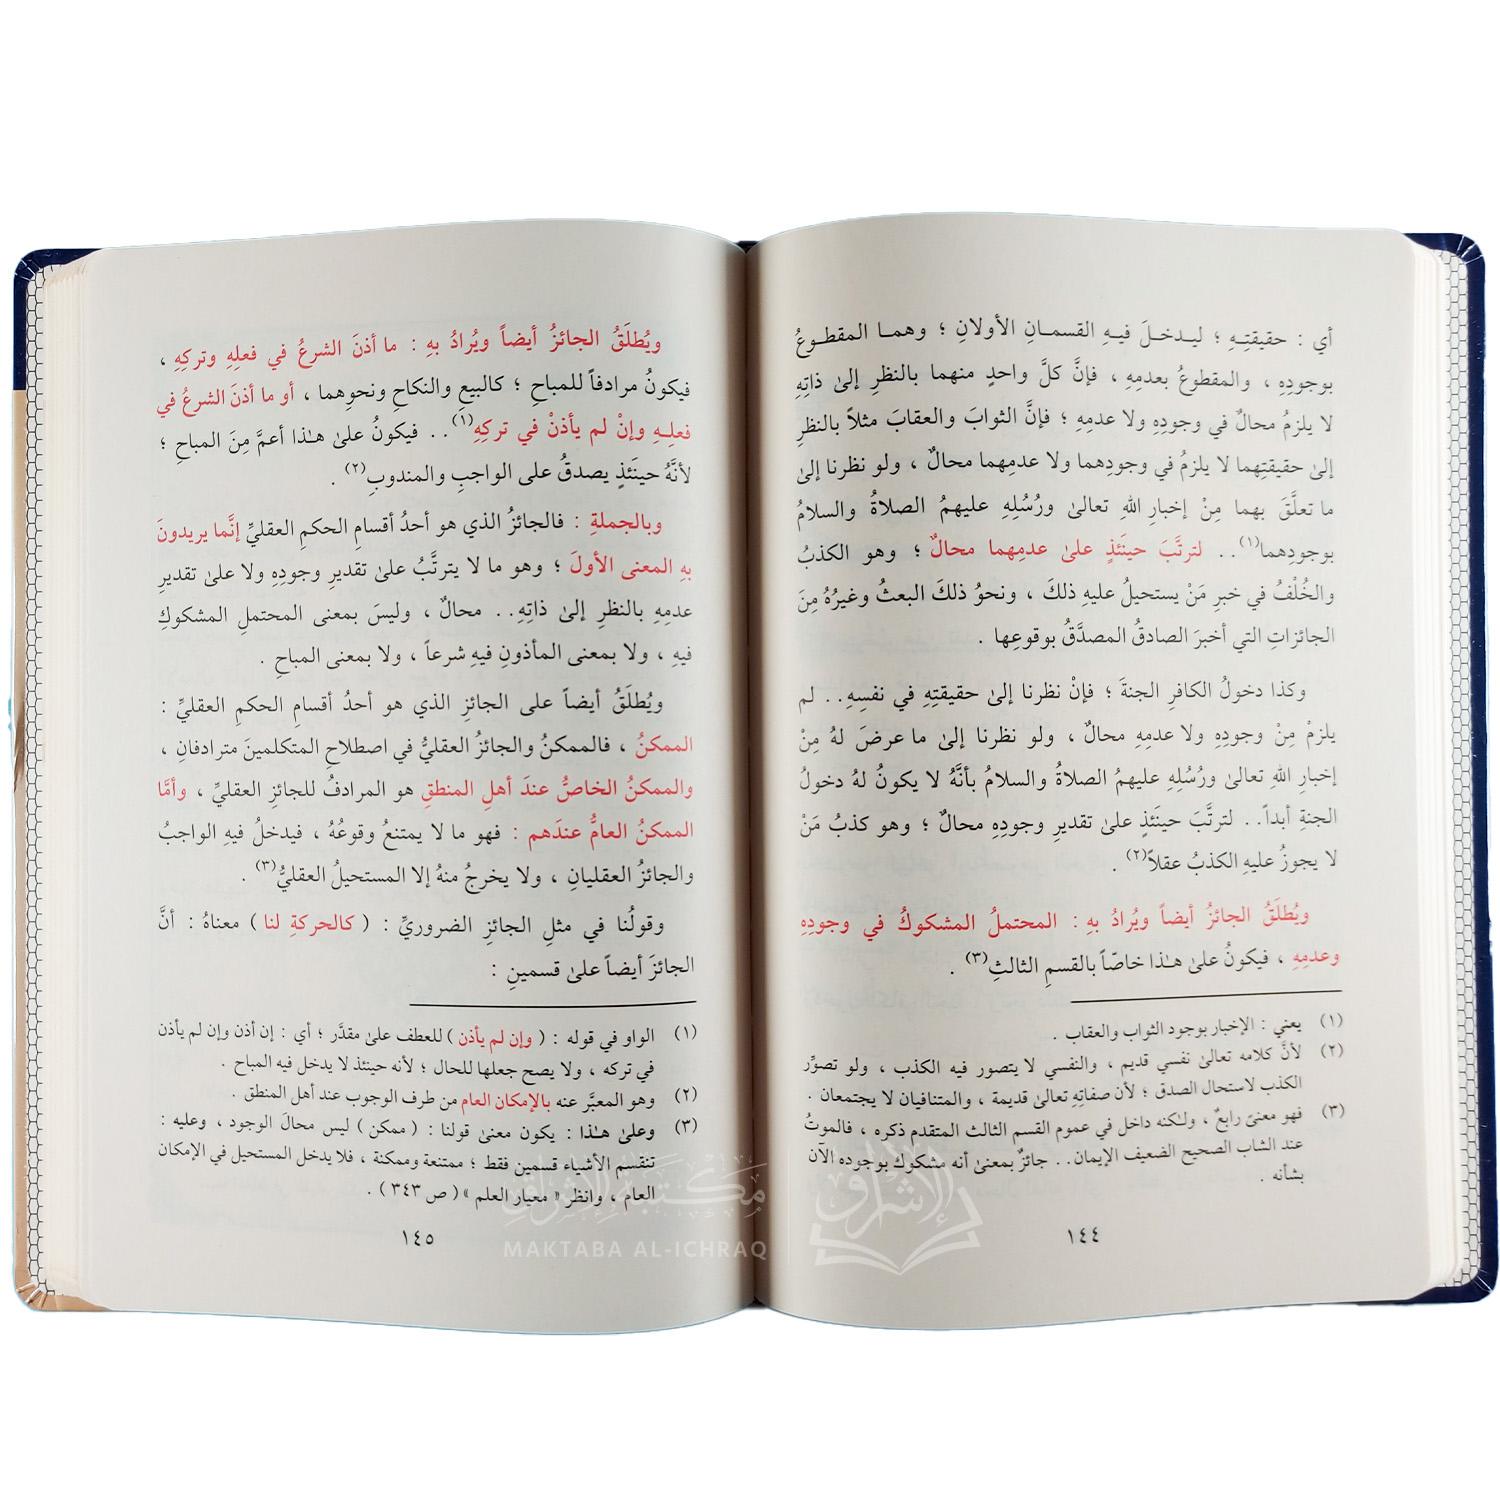 أي : حقيقتِـهِ ؛ ليـدخـلَ فيـهِ القسمـانِ الأولانِ ؛ وهمـا المقطـوعُ
بوجودِهِ ، والمقطوعُ بعدمِهِ ، فإنَّ كلَّ واحدٍ منهما بالنظرِ إلىٰ ذاتِهِ
لا يلزمُ محالٌ في وجودِهِ ولا عدمِهِ ؛ فإنَّ الثوابَ والعقابَ مثلاً بالنظرِ
إلىٰ حقيقتِهما لا يلزمُ في وجودِهما ولا عدمِهما محالٌ ، ولو نظرنا إلىٰ
ما تعلَّقَ بهما مِنْ إخبارِ اللهِ تعالىٰ ورُسُلِهِ عليهمُ الصلاةُ والسلامُ
بوجودِهما(١).. لترتَّبَ حينَئذٍ علىٰ عدمِهما محالٌ ؛ وهو الكذبُ
والخُلْفُ في خبرِ مَنْ يستحيلُ عليهِ ذلكَ ، ونحوُ ذلكَ البعثُ وغيرُهُ مِنَ
الجائزاتِ التي أخبرَ الصادقُ المصدَّقُ بوقوعِها .
وكذا دخولُ الكافرِ الجنةَ ؛ فإنْ نظرنا إلىٰ حقيقتِهِ في نفسِهِ.. لم
يلزمْ مِنْ وجودِهِ ولا عدمِهِ محالٌ ، ولو نظرنا إلىٰ ما عرضَ لهُ مِنْ
إخبارِ اللهِ تعالىٰ ورُسُلِهِ عليهمُ الصلاةُ والسلامُ بأنَّهُ لا يكونُ لهُ دخولُ
الجنةِ أبداً.. لترتَّبَ حينَئذٍ علىٰ تقديرِ وجودِهِ محالٌ ؛ وهو كذبُ مَنْ
لا يجوزُ عليهِ الكذبُ عقلاً(٢) .
ويُطلَقُ الجائزُ أيضاً ويُرادُ بهِ : المحتملُ المشكوكُ في وجودِهِ
وعدمِهِ ، فيكونُ علىٰ هـٰذا خاصّاً بالقسمِ الثالثِ(٣) .
(١) يعني : الإخبار بوجود الثواب والعقاب .
(٢) لأنَّ كلامه تعالىٰ نفسي قديم ، والنفسي لا يتصور فيه الكذب ، ولو تصوِّر
الكذب لاستحال الصدق ؛ لأن صفاتِهِ تعالىٰ قديمة ، والمتنافيان لا يجتمعان .
(٣) فهو معنىً رابعٌ ، ولـٰكنه داخل في عموم القسم الثالث المتقدم ذكره ، فالموتُ
عند الشاب الصحيح الضعيف الإيمان.. جائزٌ بمعنىٰ أنه مشكوك بوجوده الآن
بشأنه .
١٤٤
ويُطلَقُ الجائزُ أيضاً ويُرادُ بهِ : ما أذنَ الشرعُ في فعلِهِ وتركِهِ ،
فيكونُ مرادفاً للمباحِ ؛ كالبيعِ والنكاحِ ونحوِهما ، أو ما أذنَ الشرعُ في
فعلِـهِ وإنْ لم يأذنْ في تركِهِ(١).. فيكونُ علىٰ هـٰذا أعمَّ مِنَ المباحِ ؛
لأنَّهُ حينَئذٍ يصدقُ على الواجبِ والمندوبِ(٢) .
وبالجملةِ : فالجائزُ الذي هو أحدُ أقسامِ الحكمِ العقليِّ إنَّما يريدونَ
بهِ المعنى الأولَ ؛ وهو ما لا يترتَّبُ علىٰ تقديرِ وجودِهِ ولا علىٰ تقديرِ
عدمِهِ بالنظرِ إلىٰ ذاتِهِ.. محالٌ ، وليسَ بمعنى المحتملِ المشكوكِ
فيهِ ، ولا بمعنى المأذونِ فيهِ شرعاً ، ولا بمعنى المباحِ .
ويُطلَقُ أيضاً على الجائزِ الذي هو أحدُ أقسامِ الحكمِ العقليِّ :
الممكنُ ، فالممكنُ والجائزُ العقليُّ في اصطلاحِ المتكلمينَ مترادفانِ ،
والممكنُ الخاصُّ عندَ أهلِ المنطقِ هو المرادفُ للجائزِ العقليِّ ، وأمَّا
الممكنُ العامُّ عندَهم : فهو ما لا يمتنعُ وقوعُهُ ، فيدخلُ فيهِ الواجبُ
والجائزُ العقليانِ ، ولا يخرجُ منهُ إلا المستحيلُ العقليُّ(٣) .
وقولُنا في مثلِ الجائزِ الضروريِّ : ( كالحركةِ لنا ) معناهُ : أنَّ
الجائزَ أيضاً علىٰ قسمينِ :
(١) الواو في قوله : ( وإن لم يأذن ) للعطف علىٰ مقدَّر ؛ أي : إن أذن وإن لم يأذن
في تركه ، ولا يصح جعلها للحال ؛ لأنه حينئذ لا يدخل فيه المباح .
(٢) وهو المعبَّر عنه بالإمكان العام من طرف الوجوب عند أهل المنطق .
(٣) وعلىٰ هـٰذا : يكون معنىٰ قولنا : ( ممكن ) ليس محالَ الوجود ، وعليه :
تنقسم الأشياء قسمين فقط ؛ ممتنعة وممكنة ، فلا يدخل المستحيل في الإمكان
العام ، وانظر « معيار العلم » ( ص ٣٤٣ ) .
١٤٥
مكتبة الإشراق
MAKTABA AL-ICHRAQ
الإشراق